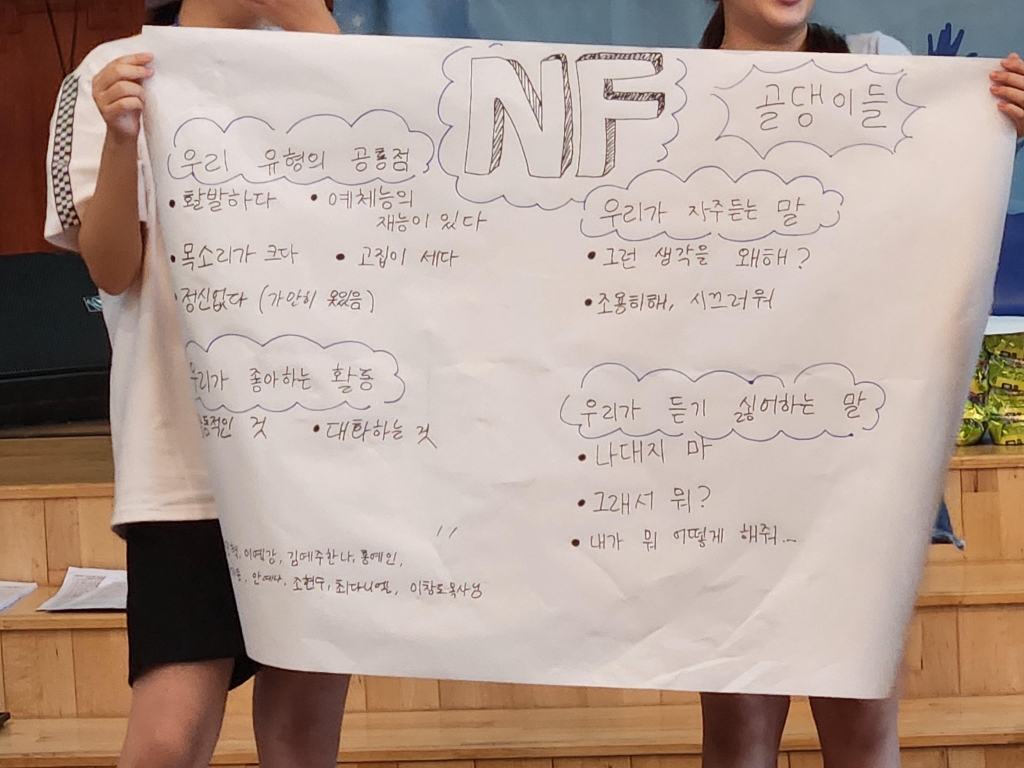 NF
골댕이들
우리 유형의 공통점
• 활발하다 • 예체능의
재능이 있다
• 목소리가 크다 • 고집이 세다
• 정신없다 (가만히 못있음)
우리가 좋아하는 활동
동적인 것 • 대화하는 것
우리가 자주듣는 말
• 그런 생각을 왜해?
• 조용히해, 시끄러워
우리가 듣기 싫어하는 말
• 나대지 마
• 그래서 뭐?
• 내가 뭐 어떻게 해줘~
이예강, 김예주한나, 홍예인,
조현우, 최다니엘, 이창도목사님